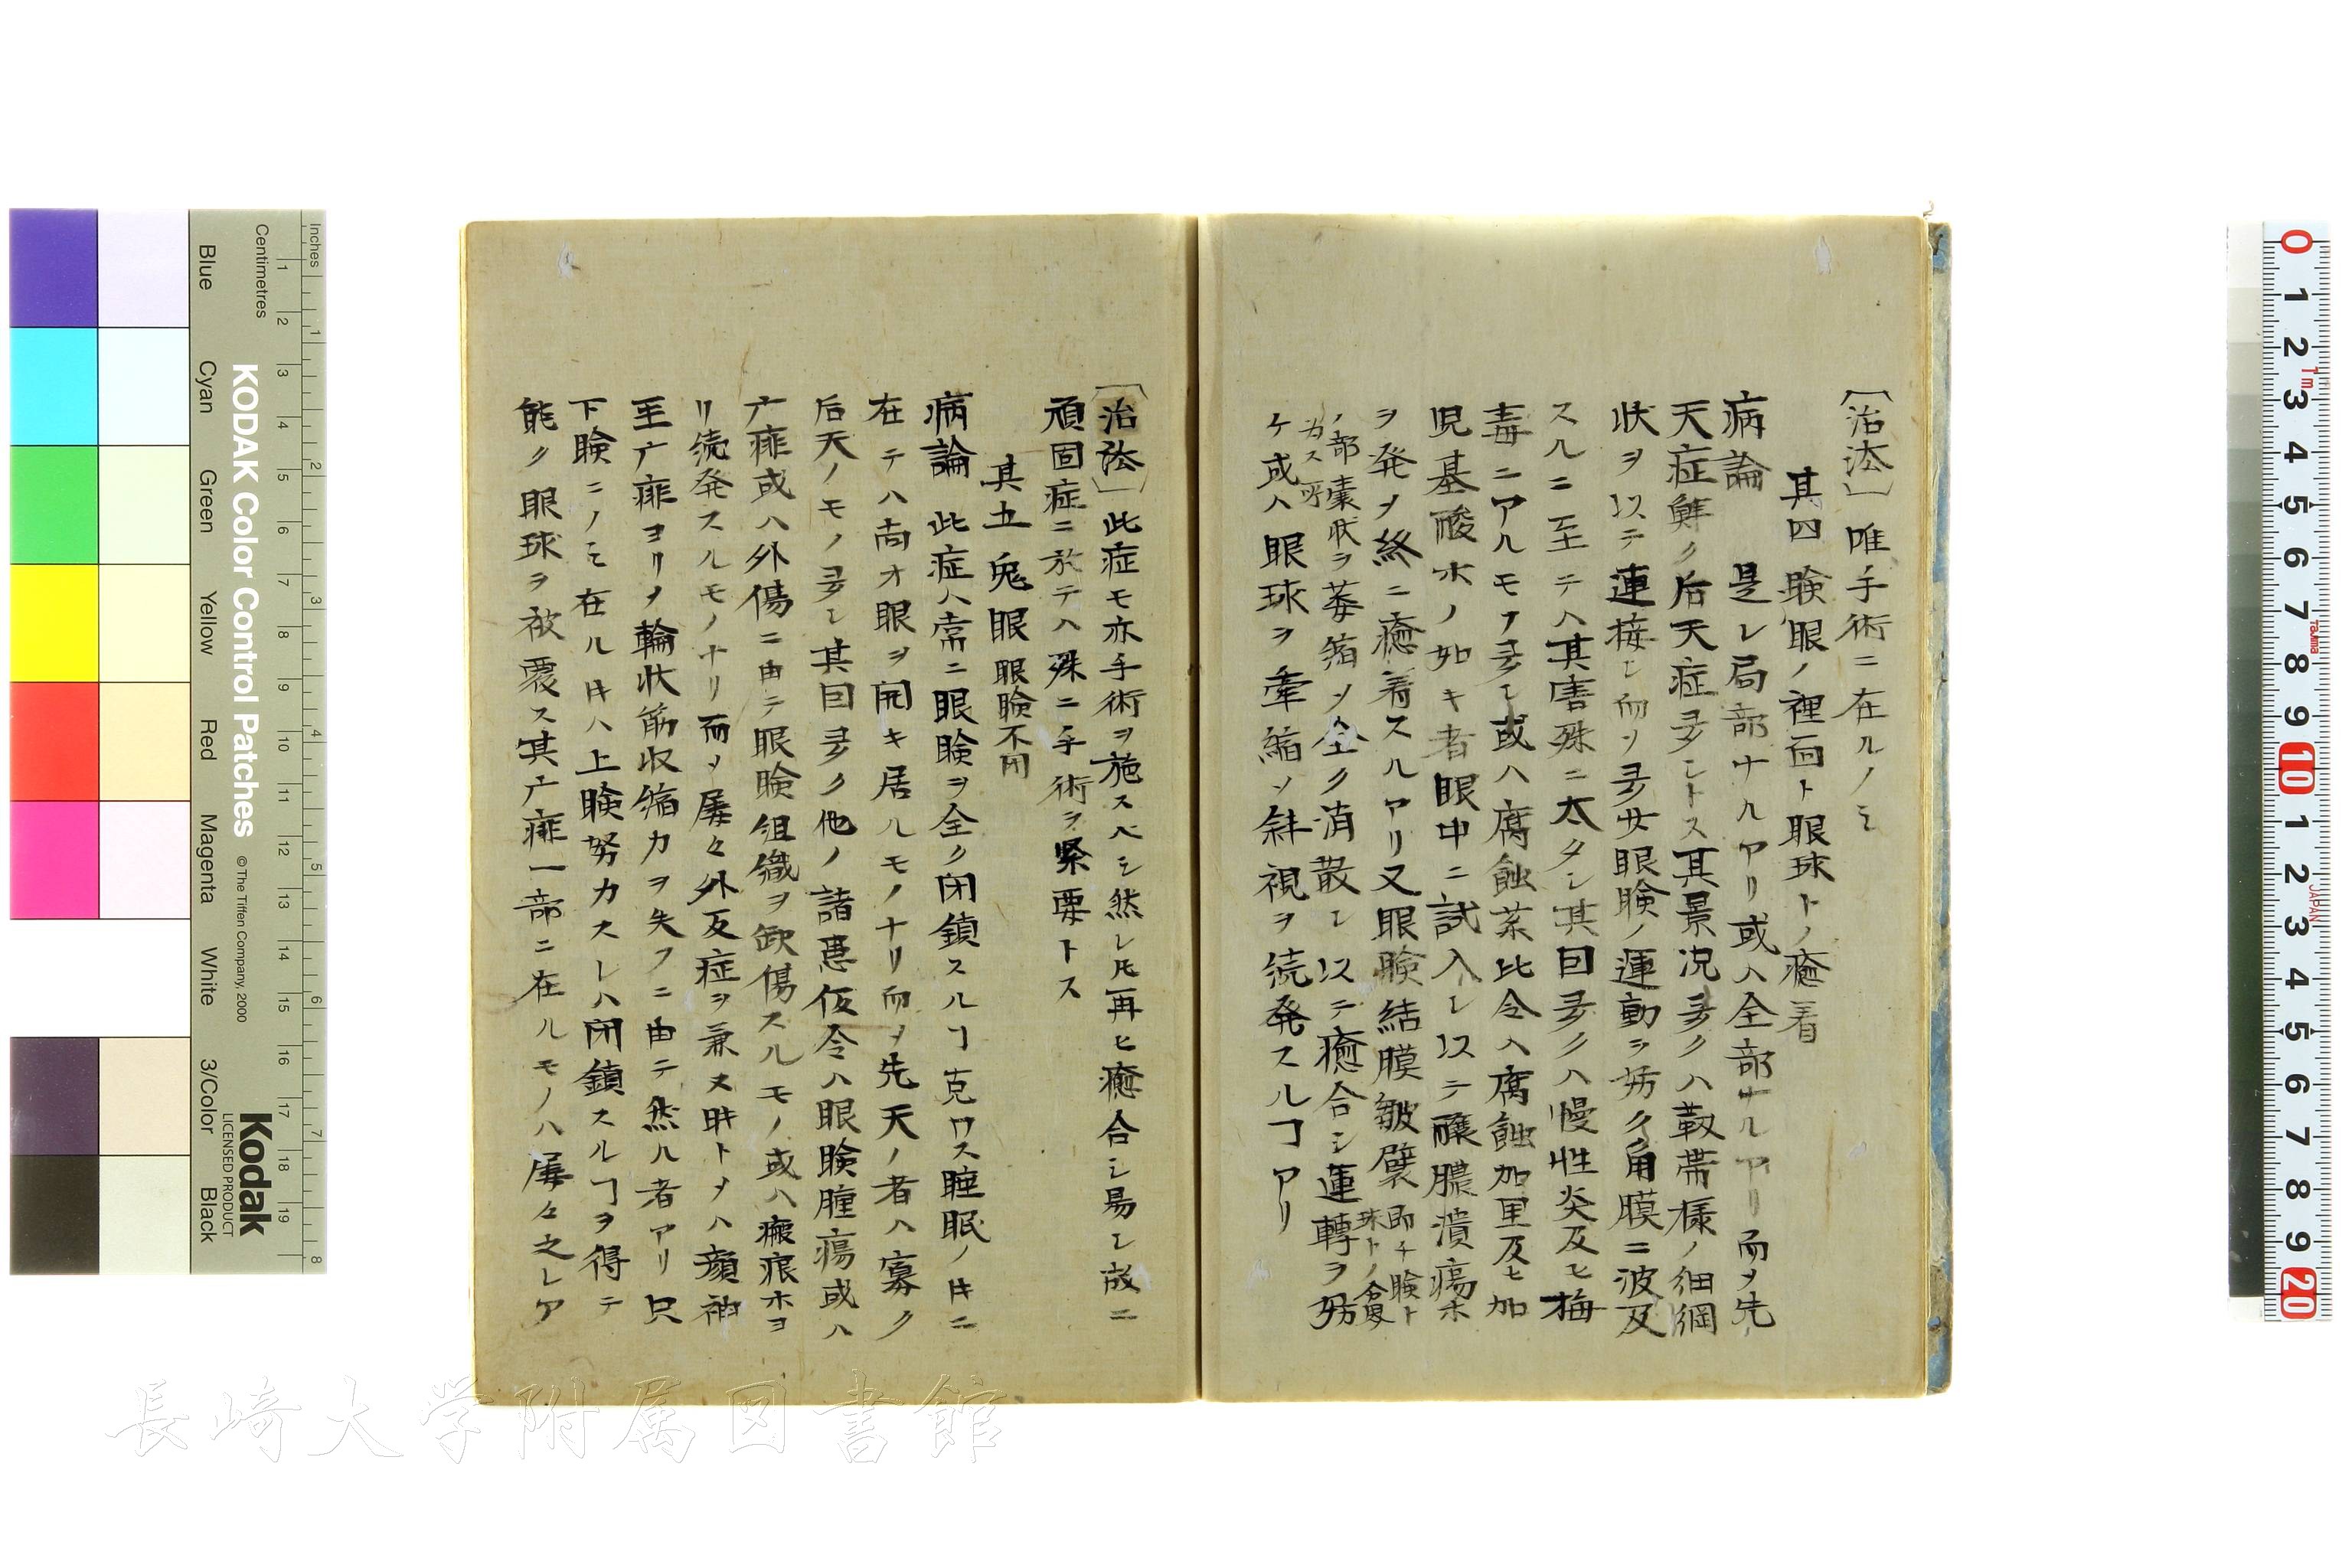 〔治法〕唯手術ニ在ルノミ
其四 瞼眼ノ裡面ト眼球トノ癒着
病論 是レ局部ナルアリ或ハ全部ナルアリ而メ先
天症鮮ク后天症多シトス其景况多クハ靱帯様ノ細綱
状ヲ以テ連接シ而メ多少眼瞼ノ運動ヲ妨ク角膜ニ波及
スルニ至テハ其害殊ニ太タシ其因多クハ慢性炎及ヒ梅
毒ニアルモノ多シ或ハ腐蝕薬比令ハ腐蝕加里及ヒ加
児基酸ホノ如キ者眼中ニ試入シ以テ釀膿潰瘍ホ
ヲ発メ終ニ癒着スルアリ又眼瞼結膜皺襞 即チ瞼ト球トノ合際
ノ部嚢状ヲ為ス所 萎縮メ全ク消散シ以テ癒合シ運轉ヲ妨
ケ或ハ眼球ヲ牽縮メ斜視ヲ続発スルヿアリ
〔治法〕此症モ亦手術ヲ施スベシ然レ𪜈再ヒ癒合シ易シ故ニ
頑固症ニ於テハ殊ニ手術ヲ緊要トス
其五 兎眼 眼瞼不閉
病論 此症ハ常ニ眼瞼ヲ全ク閉鎖スルヿ克ワス睡眠ノ𪜈ニ
在テハ尚オ眼ヲ開キ居ルモノナリ而メ先天ノ者ハ寡ク
后天ノモノ多シ其因多ク他ノ諸患仮令ハ眼瞼腫瘍或ハ
亡痱或ハ外傷ニ由テ眼瞼組織ヲ缺傷スルモノ或ハ瘢痕ホヨ
リ続発スルモノナリ而メ屡々外反症ヲ兼ヌ時トメハ顔神
至亡痱ヨリメ輪状筋収縮力ヲ失フニ由テ然ル者アリ只
下瞼ニノミ在ル𪜈ハ上瞼努力スレハ閉鎖スルヿヲ得テ
能ク眼球ヲ被覆ス其亡痱一部ニ在ルモノハ屡々之レア
KODAK Color Control Patches
©The Tiffen Company, 2000
Kodak
LICENSED PRODUCT
Inches
Centimetres
Blue
Cyan
Green
Yellow
Red
Magenta
White
3/Color
Black
長崎大学附属図書館